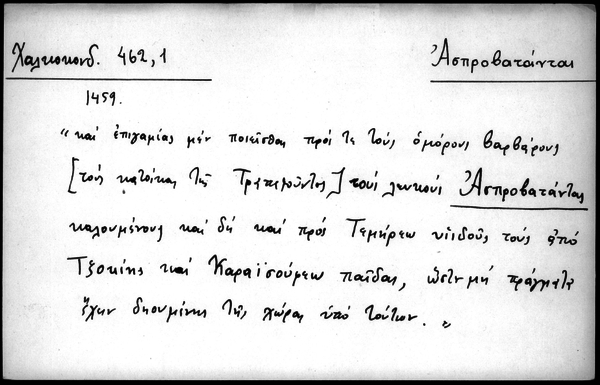 Χαλκοκονδ. 462,1
Ἀσπροβατάνται
1459.
"καὶ ἐπιγαμίας μὲν ποιεῖσθαι πρός τε τοὺς ὁμόρους βαρβάρους
[τοὺς κατοίκους τῆς Τραπεζοῦντος] τοὺς λευκοὺς Ἀσπροβατάντας
καλουμένους καὶ δὴ καὶ πρὸς Τεμήρεω υἱιδοῦς τοὺς ἀπὸ
Τζοκίης καὶ Καραϊσούφεω παῖδας, ὥστε μὴ πράγματα
ἔχειν δῃουμένης τῆς χώρας ὑπὸ τούτων."